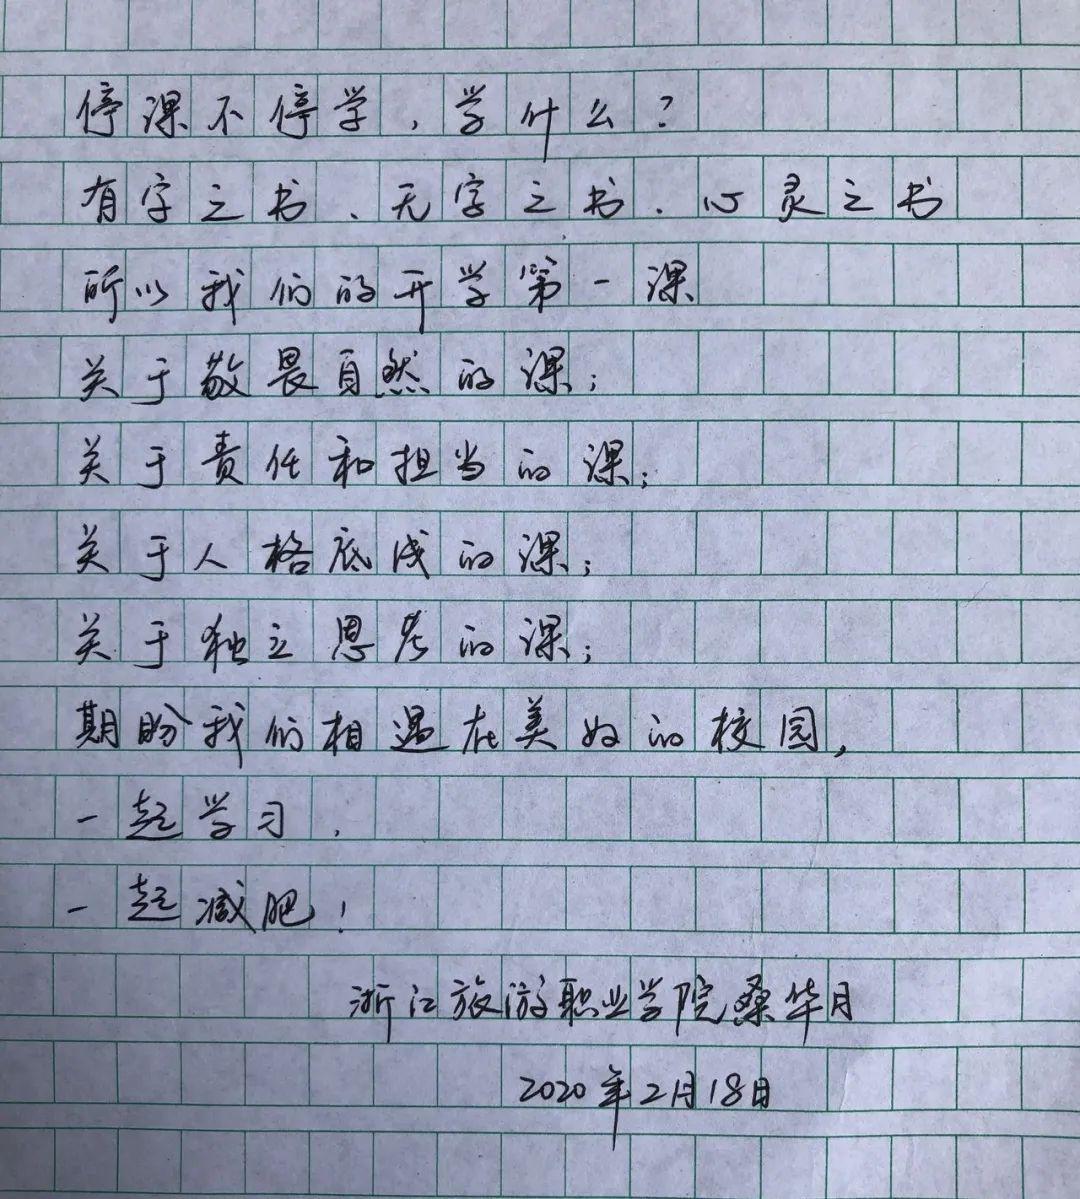 停课不停学，学什么？
有字之书、无字之书、心灵之书
所以我们的开学第一课
关于敬畏自然的课；
关于责任和担当的课；
关于人格底线的课；
关于独立思考的课；
期盼我们相遇在美好的校园，
一起学习，
一起减肥！
浙江旅游职业学院桑华月
2020年2月18日